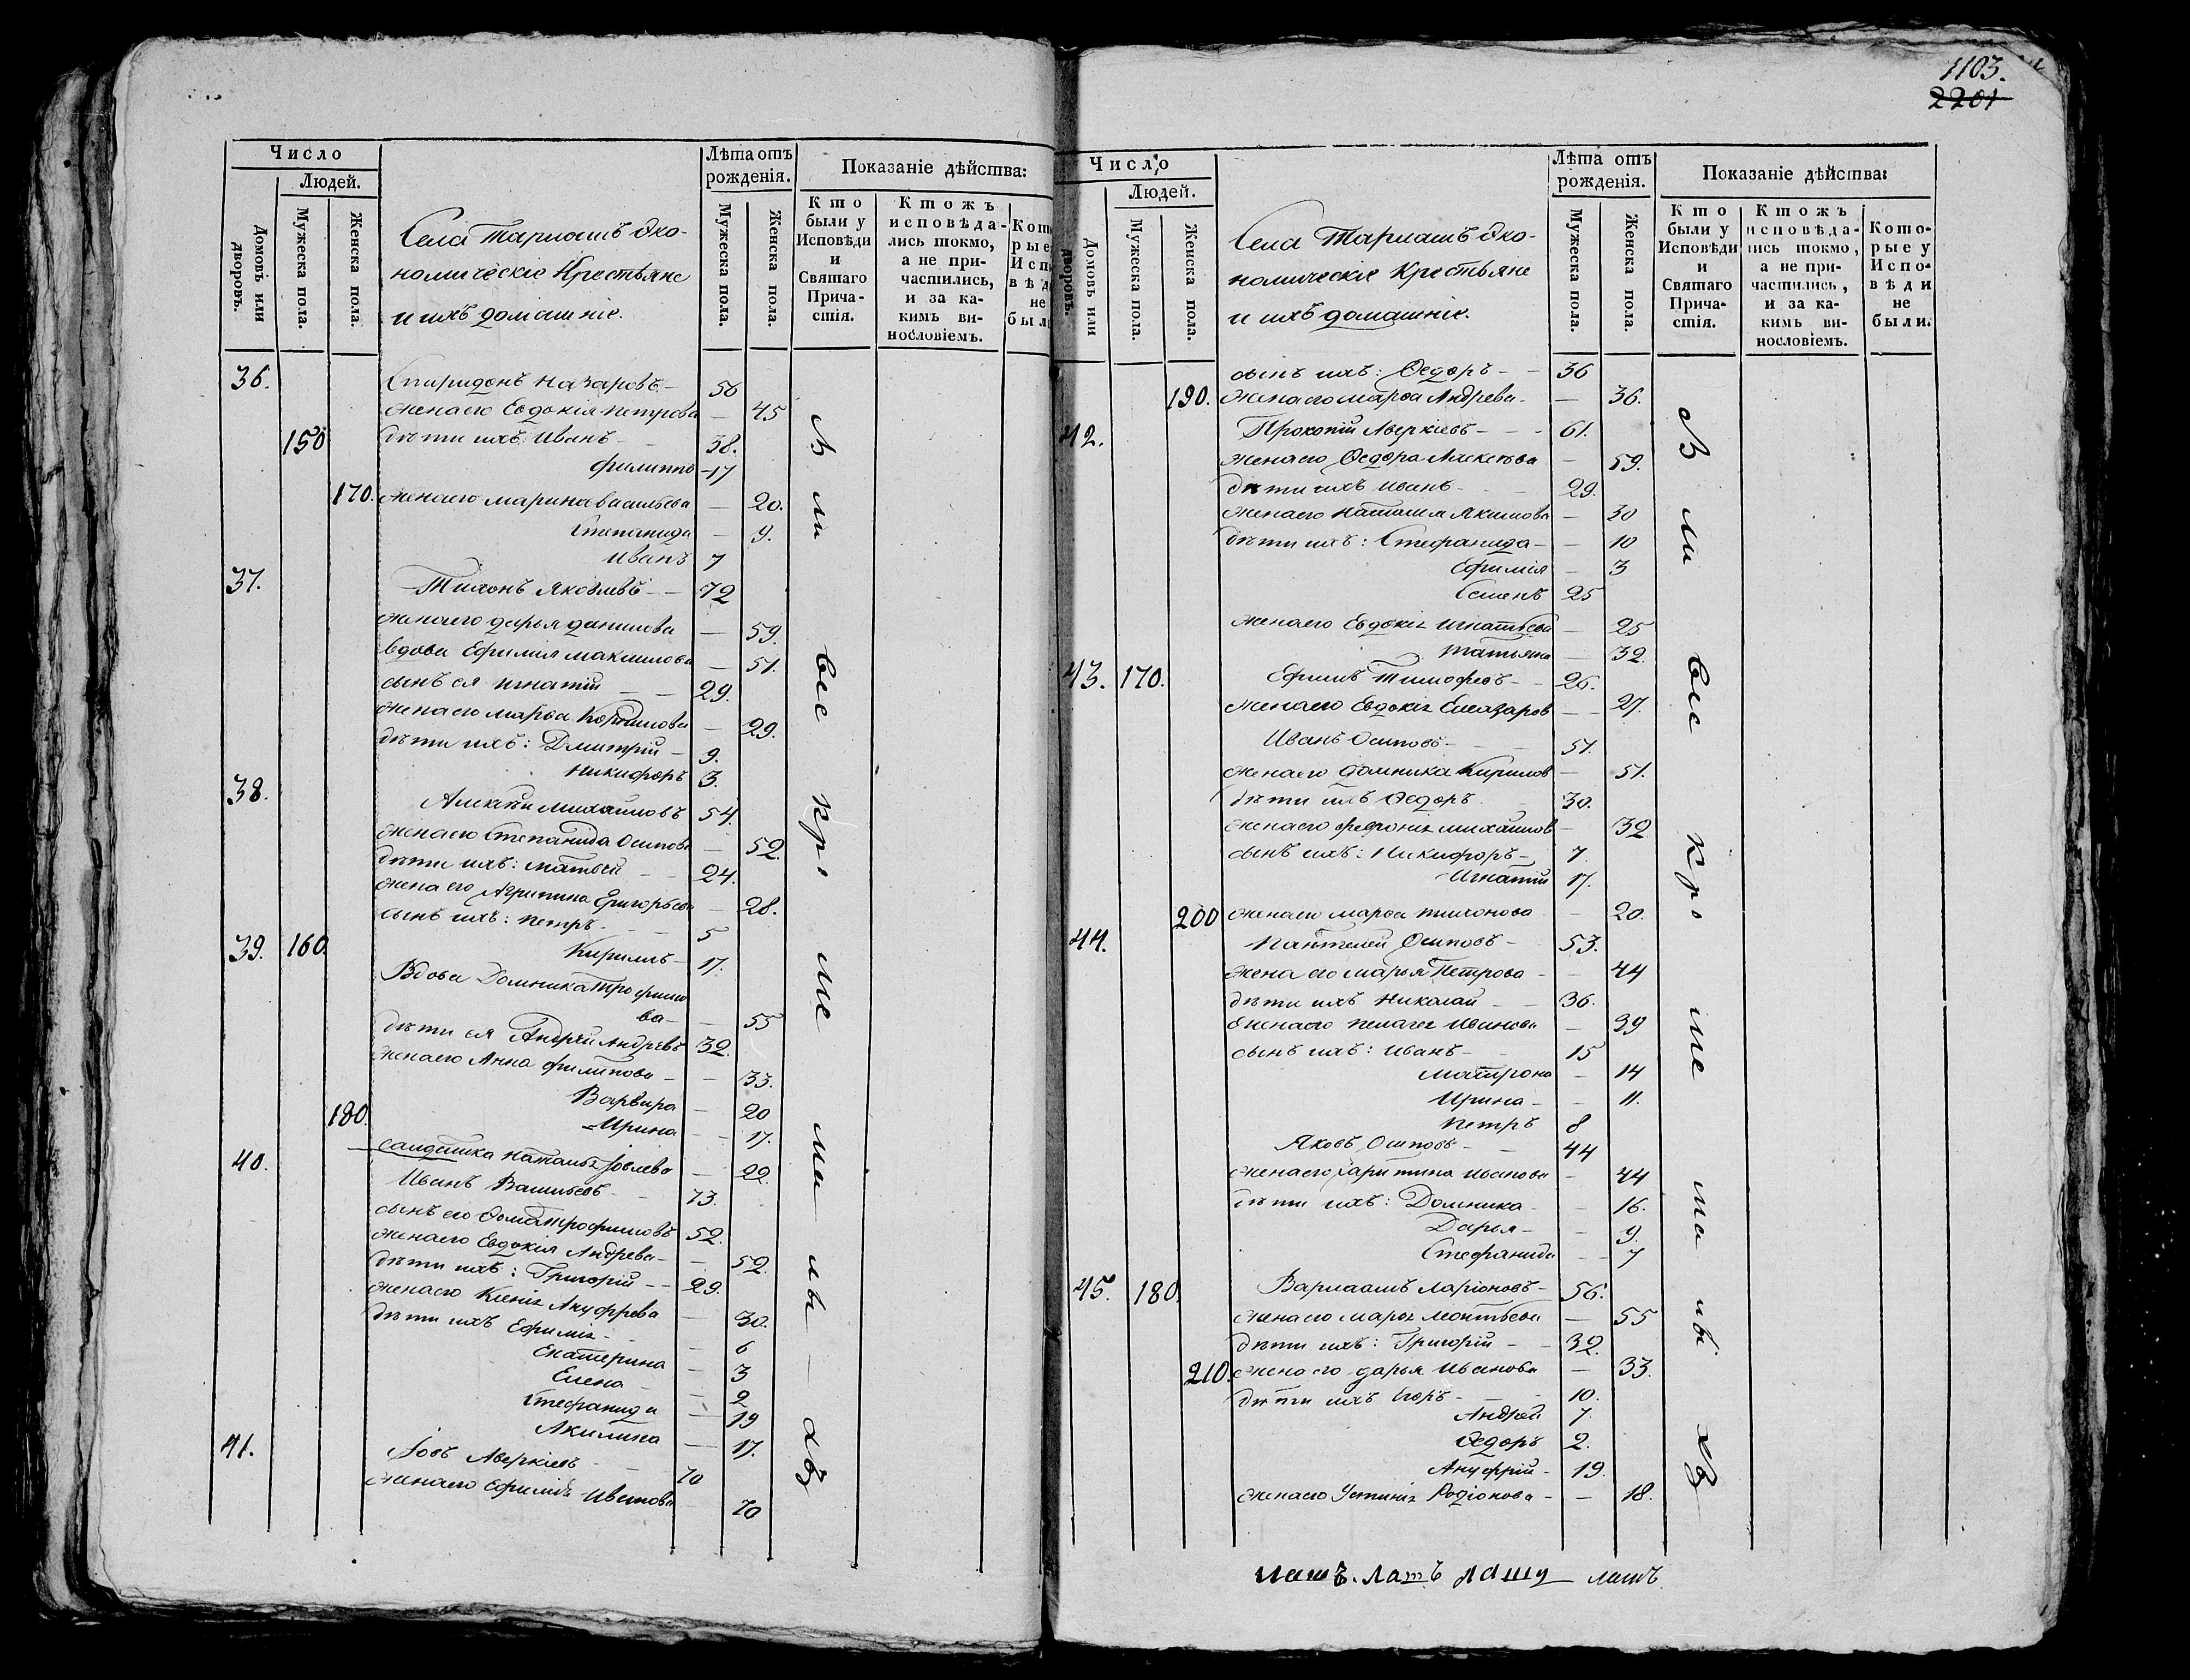 Число
Людей.
Домовъ или дворовъ.
Мужеска пола.
Женска пола.
Села Тарлашъ эко-
номическіе Крестьяне
и ихъ домашніе.
Лѣта отъ
рожденія.
Мужеска пола.
Женска пола.
Показаніе дѣйства:
Кто
были у
Исповѣди
и
Святаго
Прича-
стія.
Ктожъ
исповѣда-
лись токмо,
а не при-
частились,
и за ка-
кимъ ви-
нословіемъ.
36. Спиридонъ Назаровъ — 56
жена его Евдокія Петрова — 45
150 дѣти ихъ: Иванъ — 38.
Филиппъ — 17
170. жена его Марина Васильева — 20.
Степанида — 9.
Иванъ 7
37. Тихонъ Яковлевъ — 72
жена его Дарья Данилова — 59.
вдова Ефимія Максимова — 51.
сынъ ея Игнатій — 29.
жена его Марѳа — 29.
дѣти ихъ: Дмитрій — 9.
Никифоръ 3.
38. Михайловъ 54.
жена его Степанида Осипова — 52.
дѣти ихъ: Матвѣй — 24.
жена его Агрипина Григорьева — 28.
сынъ ихъ: Петръ — 5
39. 160. Кирилъ — 17.
Вдова Домника Трофимо
ва — 55
дѣти ея Андрей Андреевъ 32.
жена его Анна Филипова — 33.
Варвара — 20
180. Ирина — 17.
салдатка Наталья — 22.
40. Иванъ Васильевъ — 73.
сынъ его Ѳома Трофимовъ 52.
жена его Евдокія Андрева — 52.
дѣти ихъ: Григорій — 29.
жена его Ксенія Ануфрева — 30.
дѣти ихъ Ефимія — 6
Екатерина — 3
Елена — 2
Стефанида — 19
Акилина — 17.
41. Іовъ Аверкіевъ — 70
жена его Ефимія Иванова — 70
1103.
2201
Число
Людей.
Домовъ или дворовъ.
Мужеска пола.
Женска пола.
Села Тарлашъ эко-
номическіе Крестьяне
и ихъ домашніе.
Лѣта отъ
рожденія.
Мужеска пола.
Женска пола.
Показаніе дѣйства:
Кто
были у
Исповѣди
и
Святаго
Прича-
стія.
Ктожъ
исповѣда-
лись токмо,
а не при-
частились,
и за ка-
кимъ ви-
нословіемъ.
Кото-
рые у
Испо-
вѣди
не
были.
сынъ ихъ: Ѳедоръ — 36
190. жена его Марѳа Андрева — 36.
42. Прокопій Аверкіевъ — 61.
жена его Ѳедора Алексѣва — 59.
дѣти ихъ Иванъ — 29.
жена его Наталія Якимова — 30
дѣти ихъ: Стефанида — 10
Ефимія — 3
Семенъ 25
жена его Евдокія Игнатьева — 25
Татьяна — 32.
43. 170. Ефимъ Тимофеевъ — 26.
жена его Евдокія Елеазаров — 27.
Иванъ Осиповъ — 51.
жена его Домника Кирилов — 51.
дѣти ихъ Ѳедоръ 30.
жена его Февронія Михайлов — 32
сынъ ихъ: Никифоръ — 7.
Игнатій 17.
200 жена его Марѳа Тихонова — 20.
44. Пантелей Осиповъ — 53.
жена его Марья Петрова — 44
дѣти ихъ Николай — 36.
жена его Пелагея Иванова — 39
сынъ ихъ: Иванъ — 15
Матрона — 14
Ирина — 11.
Петръ 8
Яковъ Осиповъ — 44
жена его Харитина Иванова — 44
дѣти ихъ: Домника — 16.
Дарья — 9.
Стефанида — 7
45. 180. Варлаамъ Ларіоновъ — 56.
жена его Марья Леонтьева — 55
дѣти ихъ: Григорій — 32.
210. жена его Дарья Иванова — 33.
дѣти ихъ Егоръ — 10.
Андрей 7.
Ѳедоръ 2.
Ануфрій — 19.
жена его Устинія Родіонова — 18.